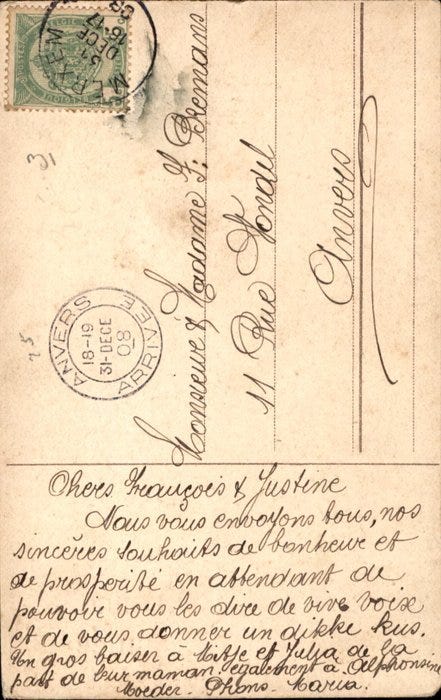 MERXEM
31
DECE
16-17
08
31
25
ANVERS
18-19
31-DECE
08
ARRIVÉE
Monsieur & Madame F. Bremans
11 Rue Vondel
Anvers
Chers François & Justine
Nous vous envoyons tous, nos
sincères souhaits de bonheur et
de prosperité en attendant de
pouvoir vous les dire de vive voix
et de vous donner un dikke kus.
Un gros baiser à Mitje et Julja de la
part de leur maman également à Alphonsine
Moeder. Phons. Maria.